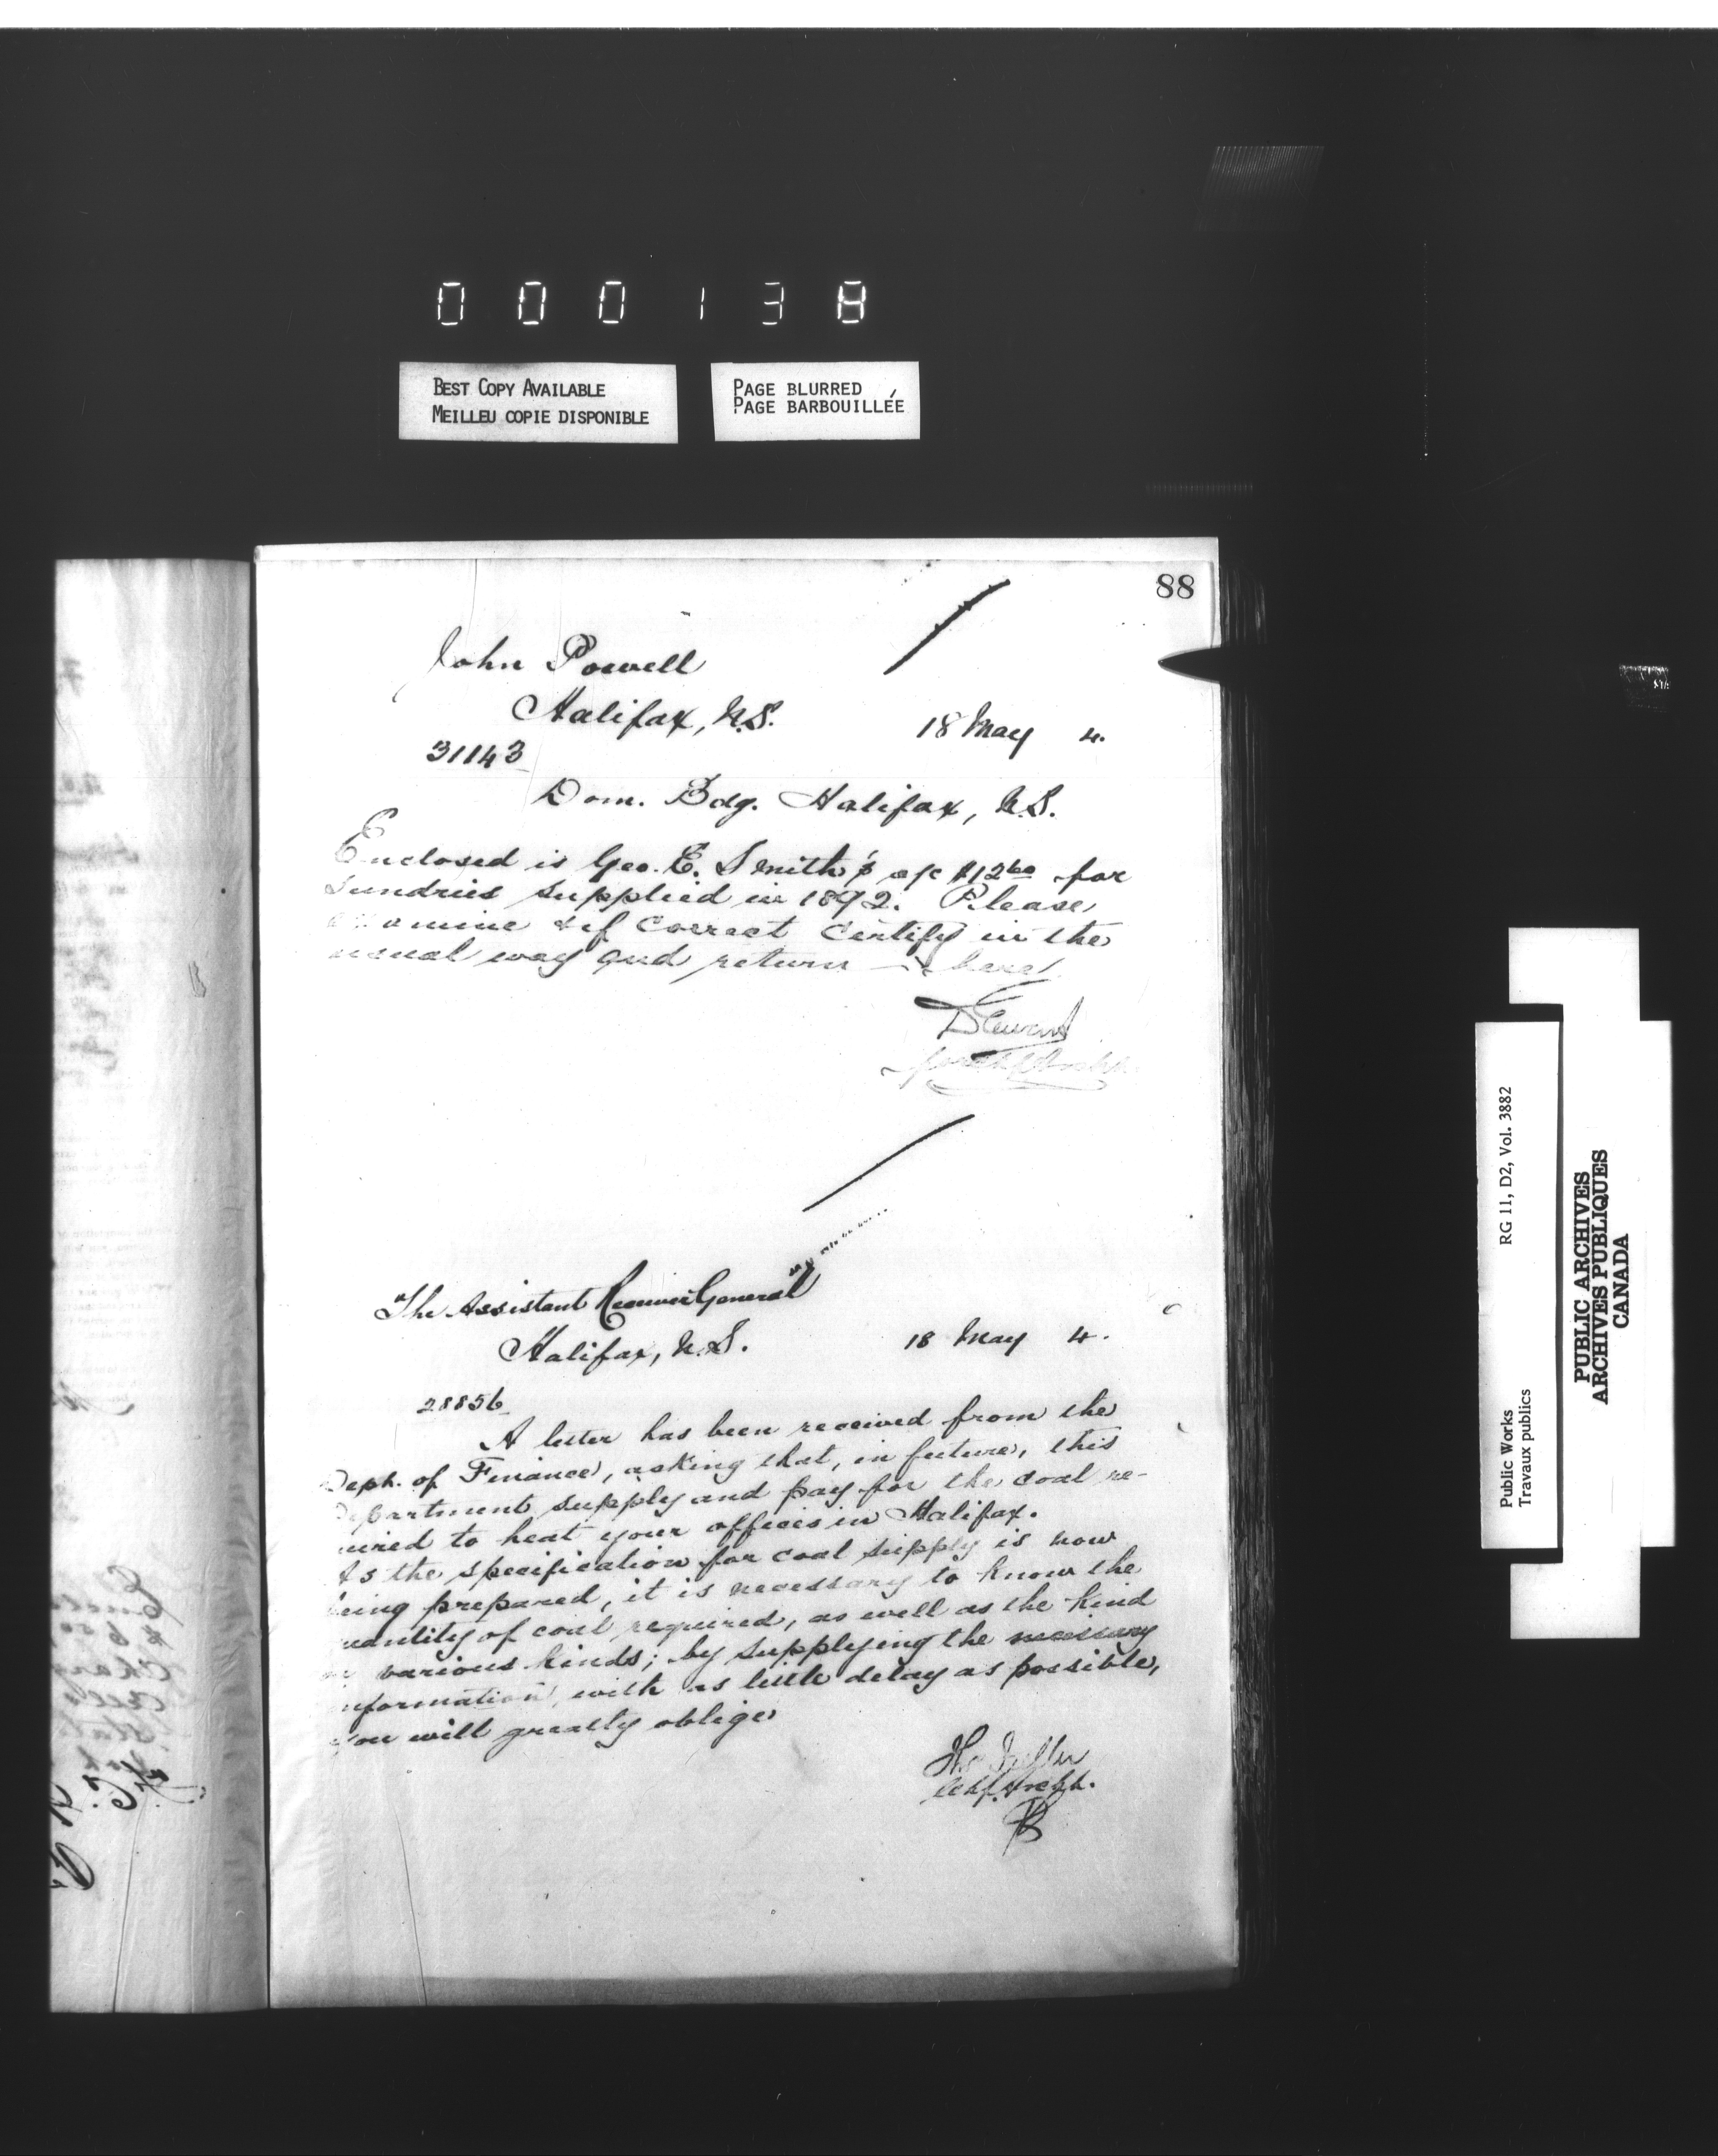 000138
BEST COPY AVAILABLE
MEILLEU COPIE DISPONIBLE
PAGE BLURRED
PAGE BARBOUILLÉE
88
John Powell
Halifax, N.S.
18 May 4.
31143
Dom. Bdg. Halifax, N.S.
Enclosed is Geo. E. Smith's a/c $12 60 for
sundries supplied in 1892. Please
examine & if correct certify in the
usual way and return
DEwart
The Assistant Receiver General
Halifax, N.S.
18 May 4.
28856
A letter has been received from the
Dept. of Finance, asking that, in future, this
epartment supply and pay for the coal re-
uired to heat your offices in Halifax.
As the specification for coal supply is now
being prepared, it is necessary to know the
uantity of coal required, as well as the kind
or various kinds; by supplying the necessary
nformation with as little delay as possible,
you will greatly oblige
RG 11, D2, Vol. 3882
Public Works
Travaux publics
PUBLIC ARCHIVES
ARCHIVES PUBLIQUES
CANADA